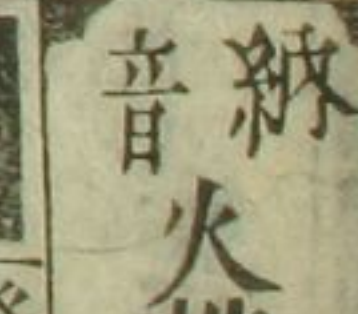 納音
火